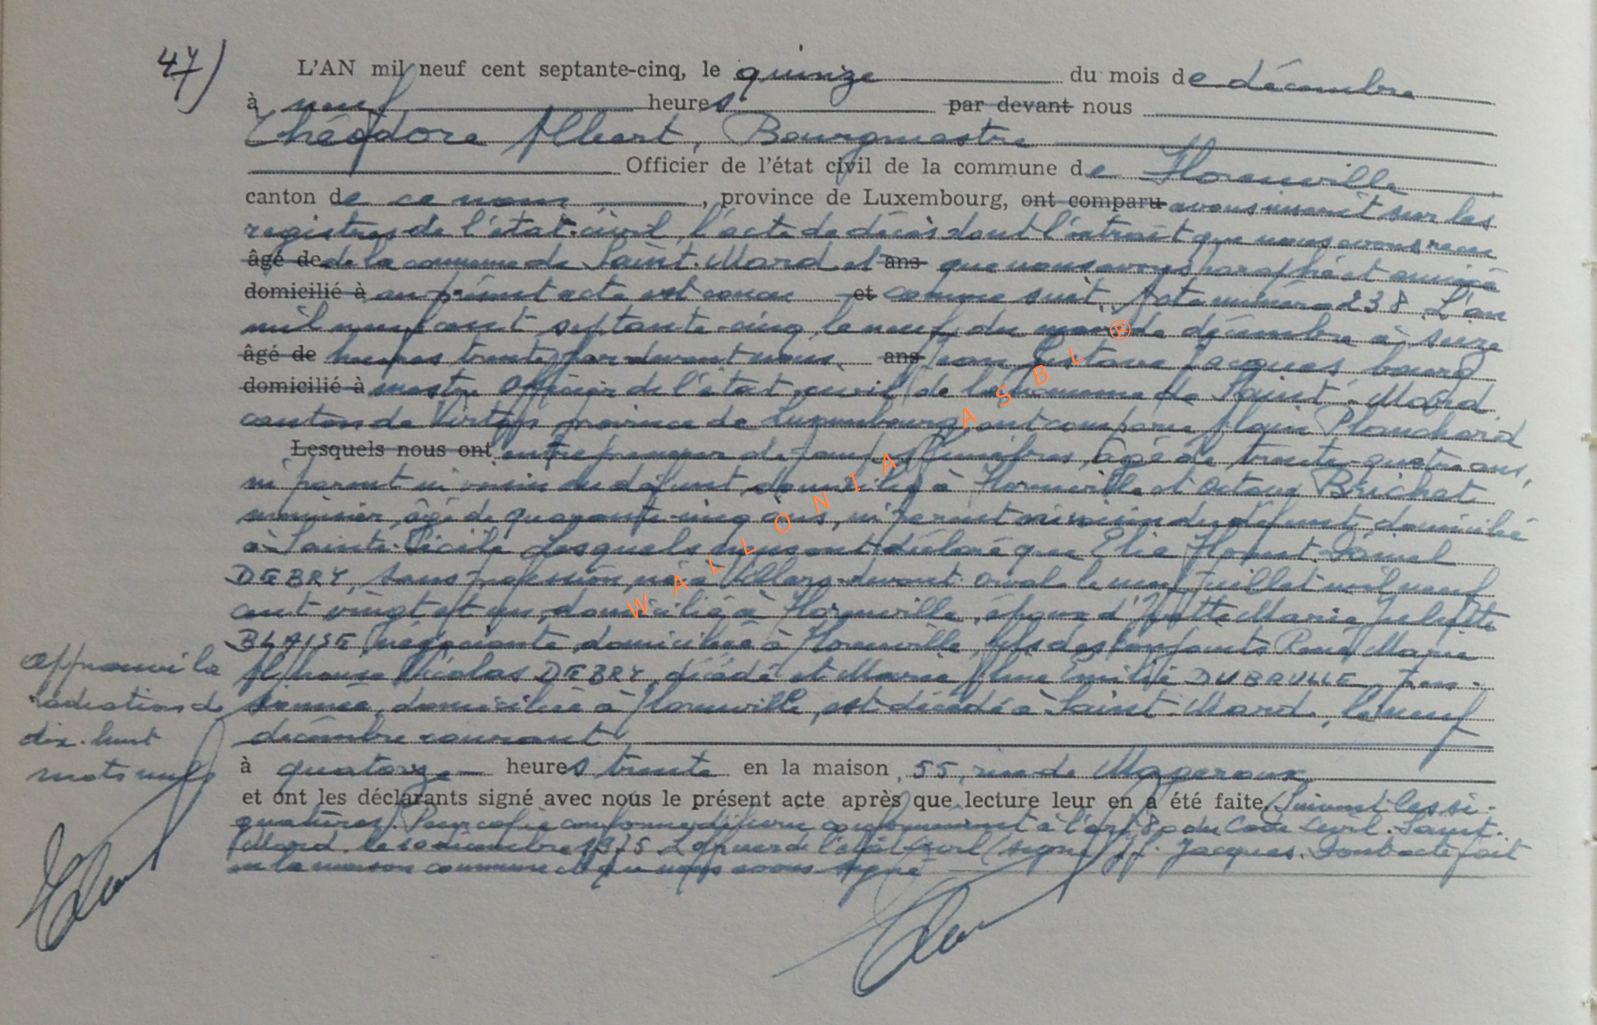 47)
L'AN mil neuf cent septante-cinq, le quinze du mois de décembre
à neuf heures par devant nous
Théodore Albert, Bourgmestre
Officier de l'état civil de la commune de Florenville
canton de ce nom, province de Luxembourg, ont comparu avons inscrit sur les
registres de l'état-civil, l'acte de décès dont l'extrait que nous avons reçu
âgé de de la commune de Saint-Mard et ans que nous avons paraphé et annexé
domicilié à au présent acte est conçu et comme suit. Acte numéro 238. L'an
mil neuf cent septante-cinq le neuf du mois de décembre à seize
âgé de heures trente, par devant nous ans Jean Gustave Jacques bourg
domicilié à mestre Officier de l'état civil de la commune de Saint-Mard
canton de Virton province de Luxembourg, ont comparu Alain Planchard
Lesquels nous ont entrepreneur de pompes funèbres, âgé de trente-quatre ans,
ni parent ni voisin du défunt, domicilié à Florenville et Octave Brichet
menuisier, âgé de quarante-cinq ans, ni parent ni voisin du défunt domicilié
à Sainte-Cécile Lesquels nous ont déclaré que Elie Florent Daniel
DEBRY, sans profession, né à Villers-devant-Orval le neuf juillet mil neuf
cent vingt et un, domicilié à Florenville, époux d'Yvette Marie Juliette
BLAISE négociante domiciliée à Florenville, fils des conjoints René Marie
Alphonse Nicolas DEBRY, décédé et Marie Aline Emilie DUBRULLE, pen-
sionnée, domiciliée à Florenville, est décédé à Saint-Mard, le neuf
décembre courant
à quatorze heures trente en la maison, 55, rue de Mageroux
et ont les déclarants signé avec nous le présent acte après que lecture leur en a été faite. Suivent les si-
gnatures. Pour copie conforme délivrée conformément à l'art 80 du Code Civil. Saint-
Mard, le 10 décembre 1975. L'officier de l'état civil (signé) J.G. Jacques. Dont acte fait
en la maison commune et que nous avons signé
approuvé la
radiation de
dix-huit
mots nuls
WALLONIA ASBL ®